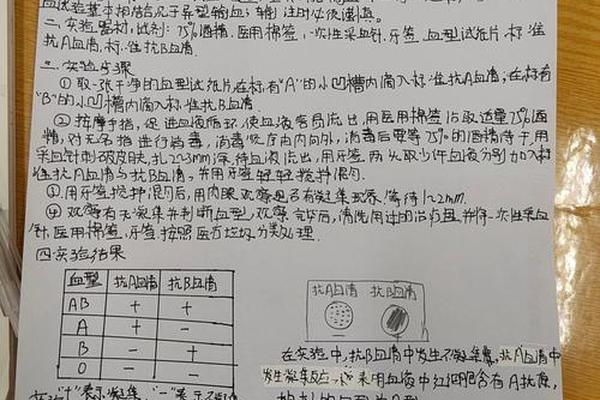 血试验基本相合允许异型输血，输注时必须谨慎。
二、实验器材、试剂: 75%酒精、医用棉签、一次性采血针、牙签、血型试纸片、标准
抗A血清、标准抗B血清.
三、实验步骤
① 取一张干净的血型试纸片，在标有"A"的小凹槽内滴入标准抗A血清，在标有
"B"的小凹槽内滴入标准抗B血清.
② 按摩手指，促进血液循环，使血液容易流出，用医用棉签沾取适量75%酒
精，对无名指进行消毒，消毒时应由内向外，消毒后要等75%的酒精待干，用
采血针刺破皮肤，扎2~3mm深，待血液流出，用牙签两头取少许血液分别加入标
准抗A血清与抗B血清，并用牙签轻轻搅拌混匀.
③ 用牙签搅拌混匀后，用肉眼观察是否有凝集现象，等待1~2mm.
④ 观察有无凝集并判断血型，观察完毕后，清洗用过的，并将一次性采血
针、医用棉签、牙签按照医疗垃圾分类处理.
四、实验结果
血型 抗A血清 抗B血清
AB + +
A + −
B − +
O − −
"+"表示凝集，"−"表示
抗A血清 抗B血清
在实验中，抗B血清中发生不凝集，抗A血清中
发生凝集反应，采用血液中红细胞含有A抗原，